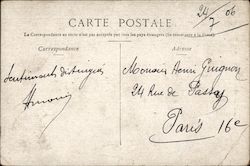 CARTE POSTALE.
24/7 06
La Correspondance au recto n'est pas acceptée par tous les pays étrangers (Se renseigner à la Poste).
Correspondance
Adresse
Sentiments distingués
Monsieur Henri Guignon
24 Rue de Passy
Paris 16e